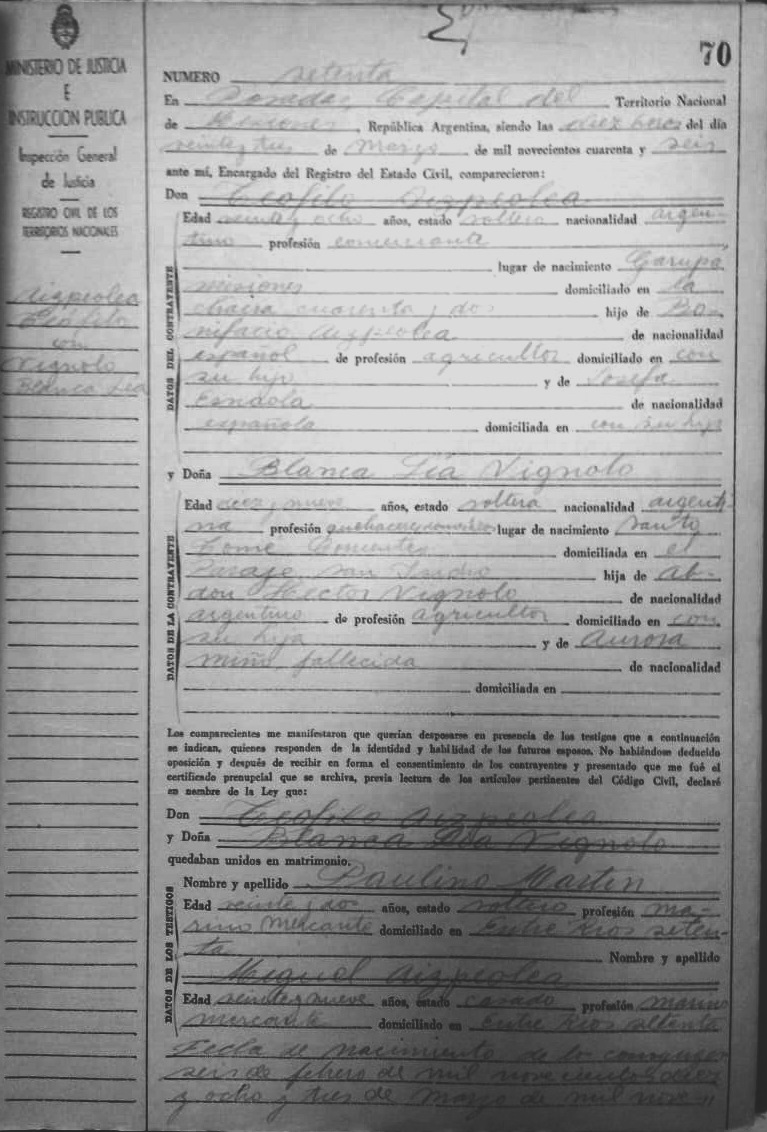 70
MINISTERIO DE JUSTICIA
E
INSTRUCCION PUBLICA
Inspección General
de Justicia
REGISTRO CIVIL DE LOS
TERRITORIOS NACIONALES
Aizpeolea
Teófilo
con
Vignolo
Blanca Lía
NUMERO setenta
En Posadas, Capital del Territorio Nacional
de Misiones, República Argentina, siendo las diez horas del día
veintey tres de Marzo de mil novecientos cuarenta y seis
ante mí, Encargado del Registro del Estado Civil, comparecieron:
Don Teofilo Aizpeolea
DATOS DEL CONTRAYENTE
Edad y ocho años, estado soltero nacionalidad argen-
tino profesión
lugar de nacimiento Garupá
misiones domiciliado en la
chacra cuarenta y dos hijo de Bo-
nifacio Aizpeolea de nacionalidad
español de profesión agricultor domiciliado en con
su hijo y de Josefa
de nacionalidad
española domiciliada en con su hijo
y Doña Blanca Lía Vignolo
DATOS DE LA CONTRAYENTE
Edad diez y nueve años, estado soltera nacionalidad argenti-
na profesión quehaceres domésticos lugar de nacimiento Santo
Tomé Corrientes domiciliada en el
Paraje San Isidro hija de Ab-
don Hector Vignolo de nacionalidad
argentino de profesión agricultor domiciliado en con
su hija y de Aurora
Miño, fallecida de nacionalidad
domiciliada en
Los comparecientes me manifestaron que querían desposarse en presencia de los testigos que a continuación
se indican, quienes responden de la identidad y habilidad de los futuros esposos. No habiéndose deducido
oposición y después de recibir en forma el consentimiento de los contrayentes y presentado que me fué el
certificado prenupcial que se archiva, previa lectura de los artículos pertinentes del Código Civil, declaré
en nombre de la Ley que:
Don Teofilo Aizpeolea
y Doña Blanca Lía Vignolo
quedaban unidos en matrimonio.
DATOS DE LOS TESTIGOS
Nombre y apellido Paulino Martin
Edad veinte y dos años, estado soltero profesión ma-
rino mercante domiciliado en Entre Rios seten-
ta Nombre y apellido
Miguel Aizpeolea
Edad veinte y nueve años, estado casado profesión marino
mercante domiciliado en Entre Rios setenta
Fecha de nacimiento de los conyuges
seis de febrero de mil novecientos diez
y ocho y tres de Marzo de mil nove-